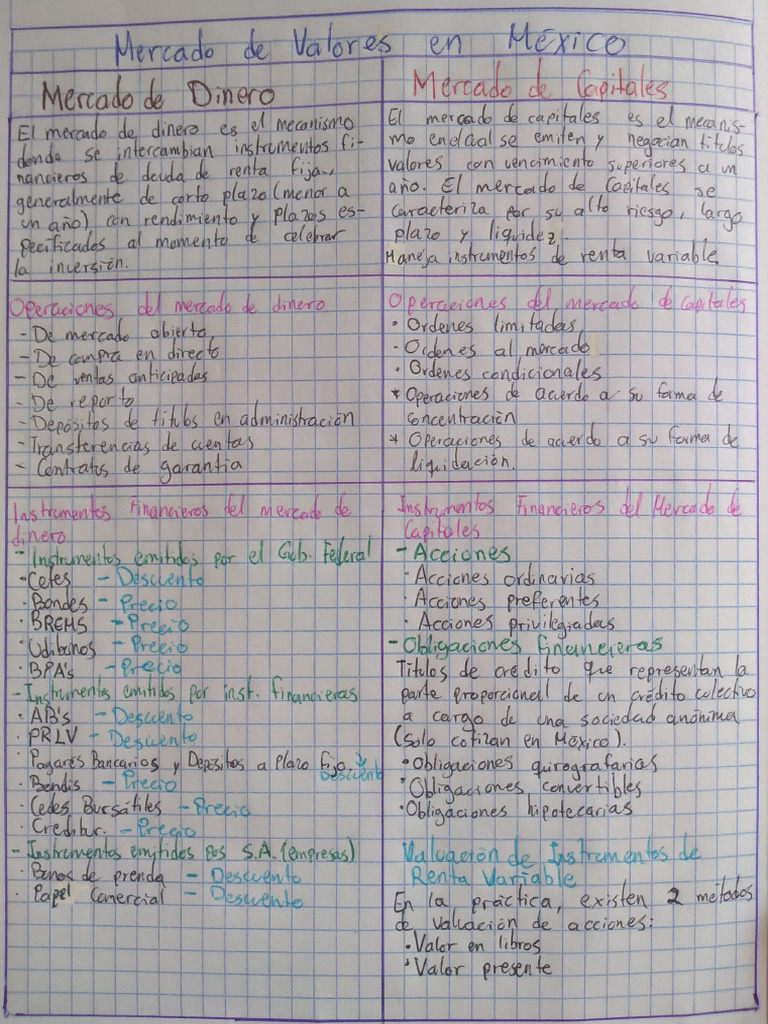 Mercado de Valores en México
Mercado de Dinero
El mercado de dinero es el mecanismo
donde se intercambian instrumentos fi-
nancieros de deuda de renta fija,
generalmente de corto plazo (menor a
un año) con rendimiento y plazos es-
pecificados al momento de celebrar
la inversión.
Mercado de Capitales
El mercado de capitales es el mecanis-
mo en el cual se emiten y negocian titulos
valores con vencimiento superiores a un
año. El mercado de Capitales se
caracteriza por su alto riesgo, largo
plazo y liquidez.
Maneja instrumentos de renta variable
Operaciones del mercado de dinero
- De mercado abierto
- De compra en directo
- De ventas anticipadas
- De reporto
- Depósitos de titulos en administración
- Transferencias de cuentas
- Contratos de garantia
Operaciones del mercado de Capitales
· Ordenes limitadas
· Ordenes al mercado
· Ordenes condicionales
* Operaciones de acuerdo a su forma de
concentración
* Operaciones de acuerdo a su forma de
liquidación.
Instrumentos Financieros del mercado de
dinero
- Instrumentos emitidos por el Gob. Federal
· Cetes - Descuento
· Bondes - Precio
· BREMS - Precio
· Udibonos - Precio
· BPA's - Precio
- Instrumentos emitidos por inst. financieras
· AB's - Descuento
· PRLV - Descuento
· Pagarés Bancarios y Depósitos a Plazo fijo. Descuento
· Bondis - Precio
· Cedes Bursátiles - Precio
· Creditbur. - Precio
- Instrumentos emitidos por S.A. (empresas)
· Bonos de prenda - Descuento
· Papel Comercial - Descuento
Instrumentos Financieros del Mercado de
Capitales
- Acciones
· Acciones ordinarias
· Acciones preferentes
· Acciones privilegiadas
- Obligaciones financieras
Titulos de crédito que representan la
parte proporcional de un crédito colectivo
a cargo de una sociedad anónima
(Solo cotizan en México).
· Obligaciones quirografarias
· Obligaciones convertibles
· Obligaciones hipotecarias
Valuación de Instrumentos de
Renta Variable
En la práctica, existen 2 métodos
de valuación de acciones:
· Valor en libros
· Valor presente